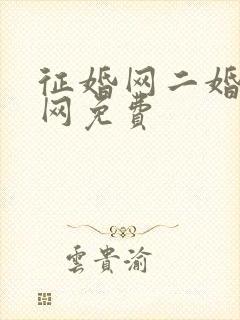 征婚网二婚
网免费
雲貴渝